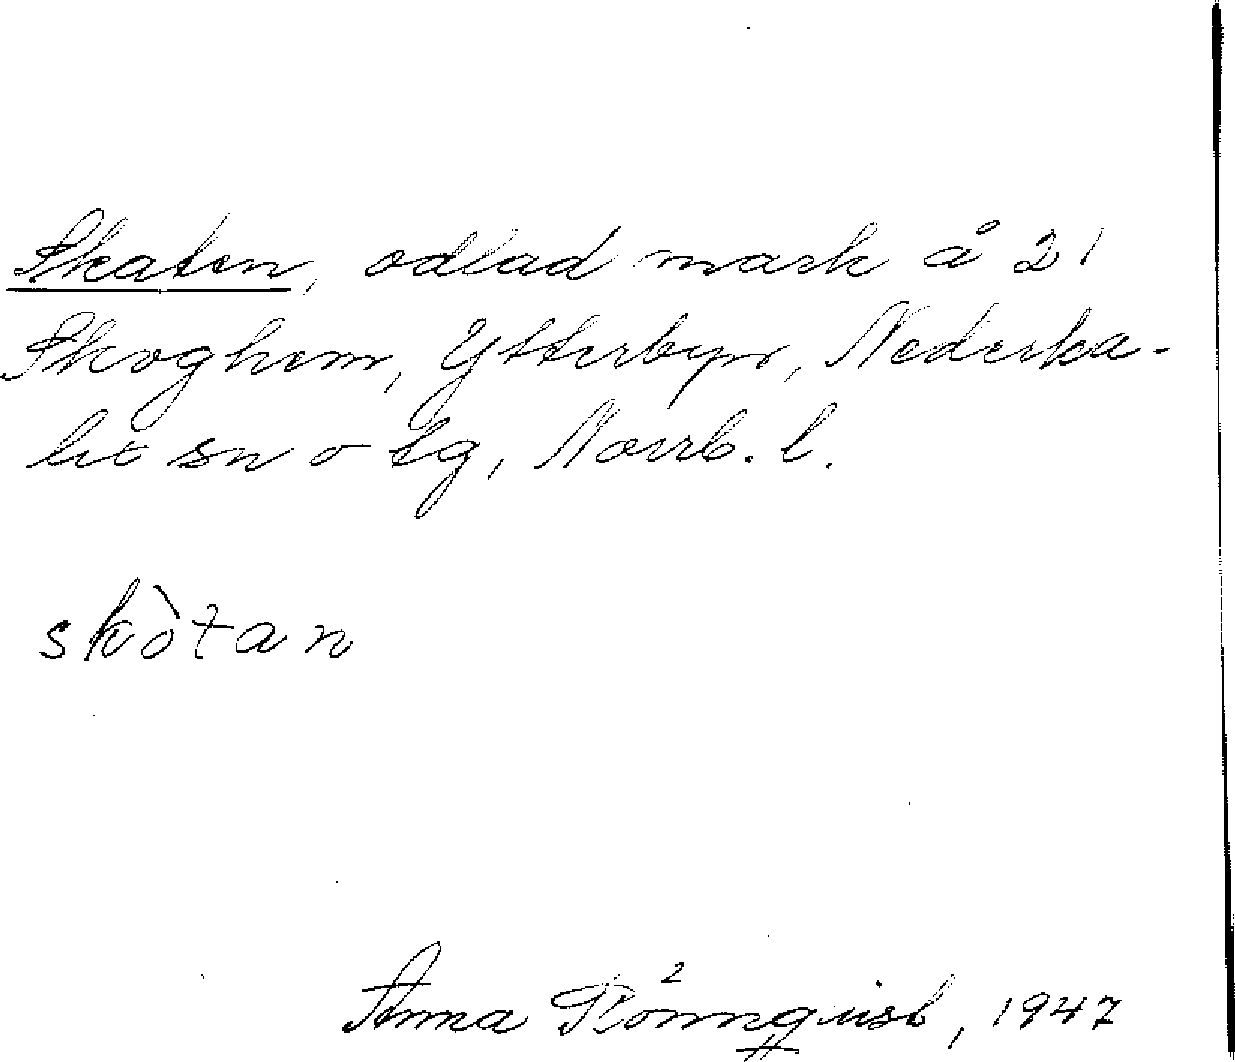 Skaten, odlad mark å 21
Skoghem, Ytterbyn, Nederka-
lix sn o tg, Norrb. l.
skòtan
Anna Rönnqvist, 1947